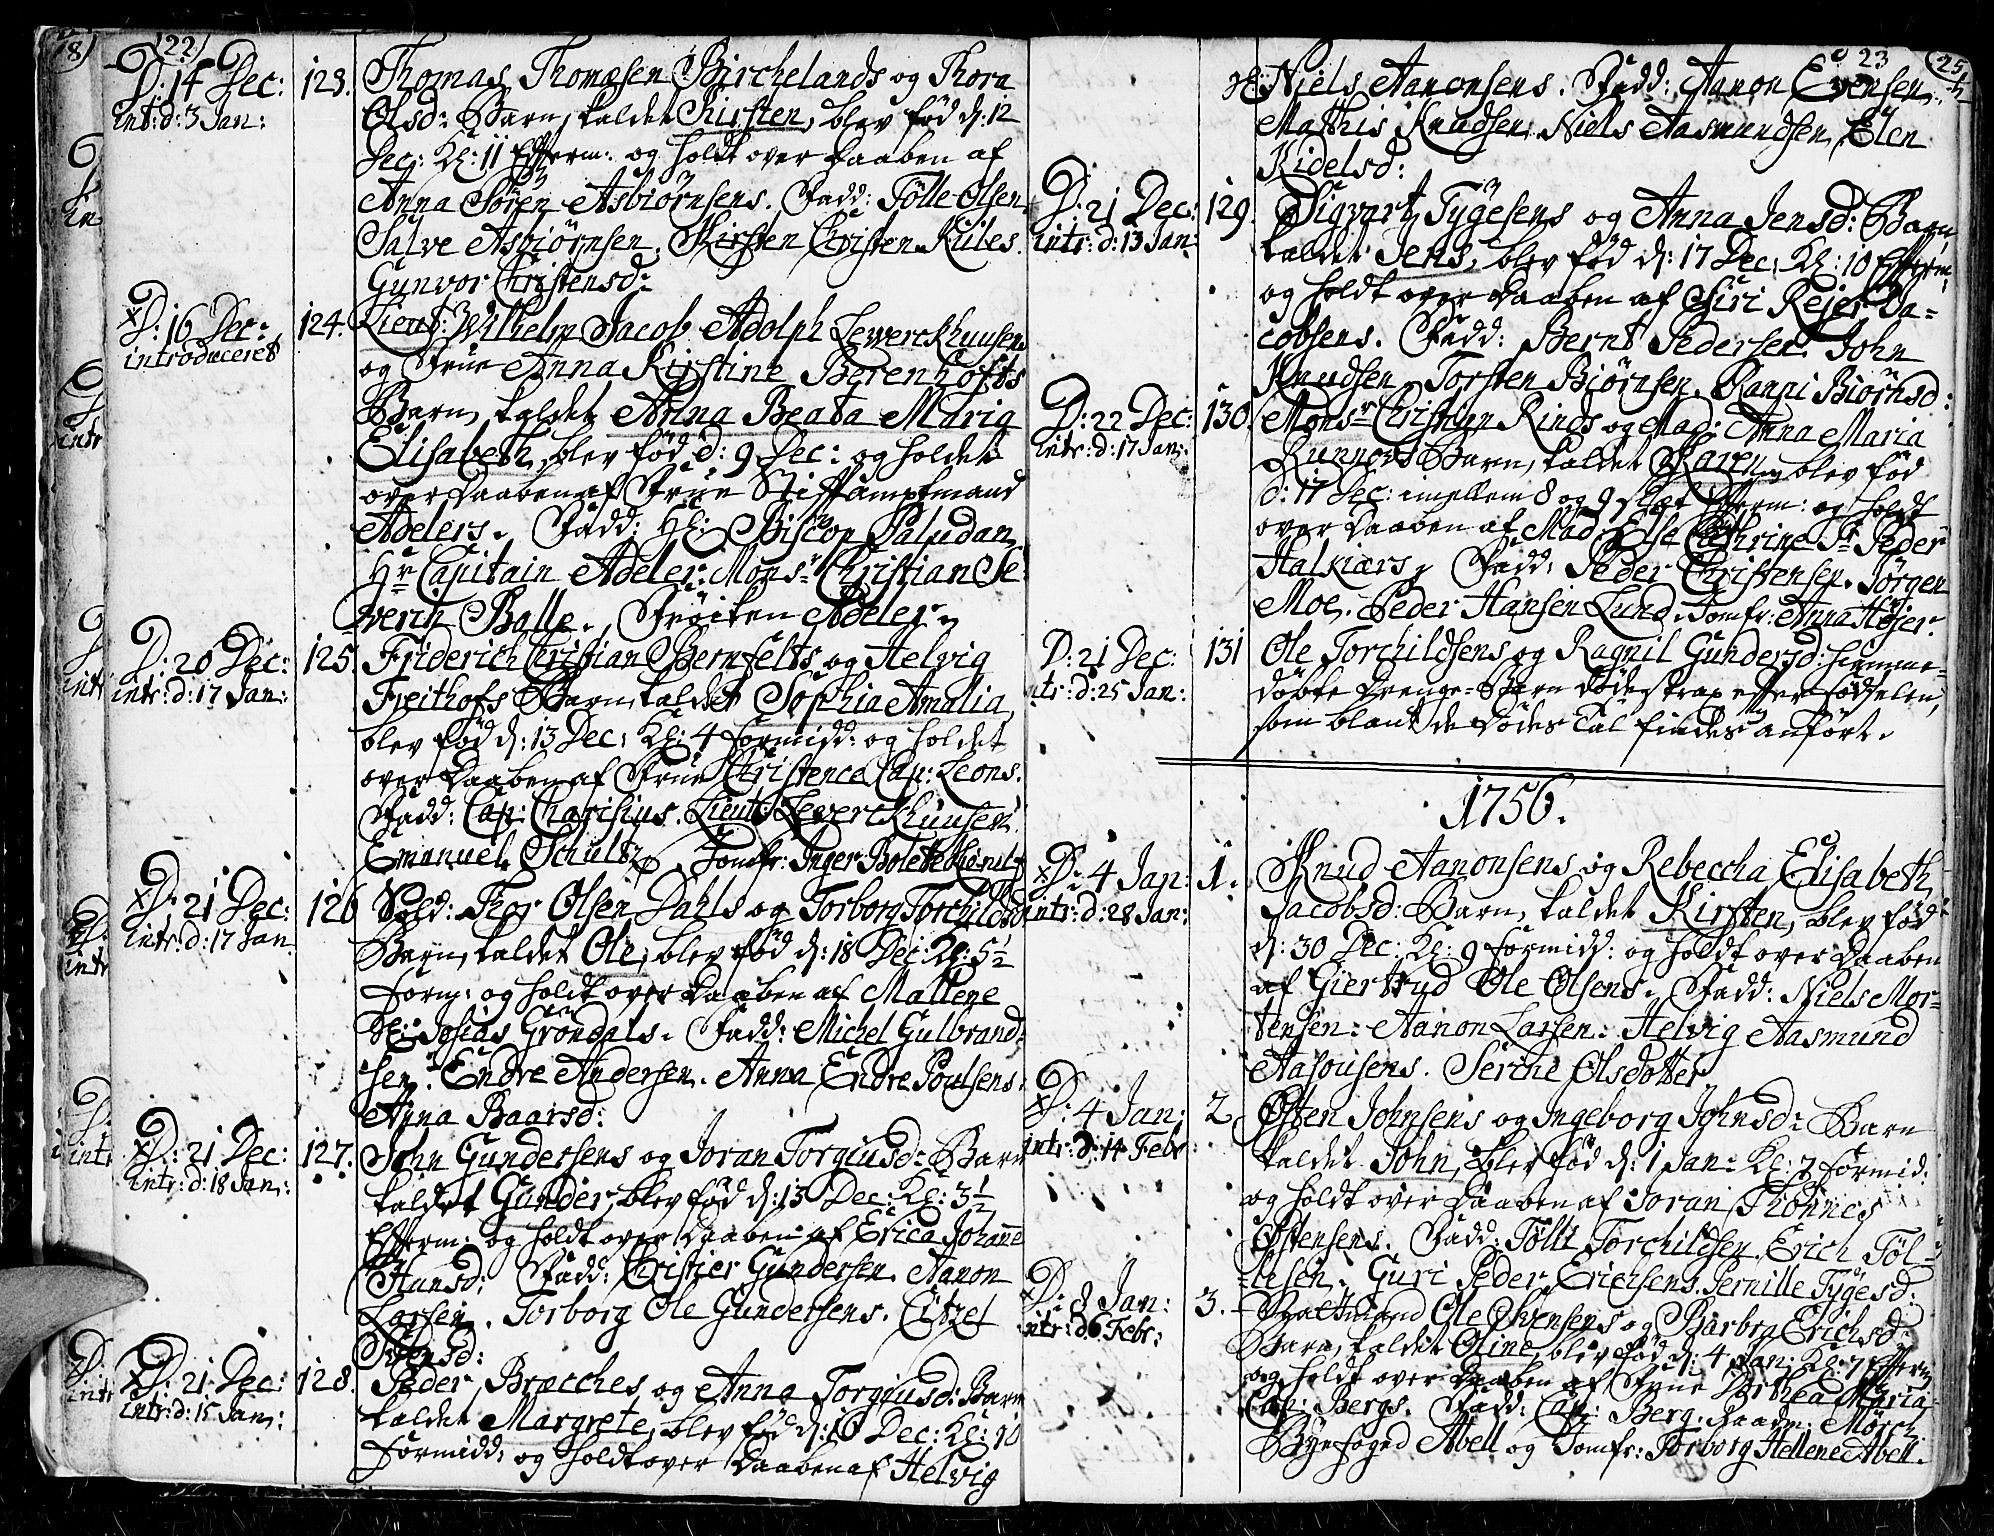 22
D: 14 Dec:
int: d: 3 Jan:
123.
Thomas Thomæsen Birchelands og Thora
Olsd: Barn, kaldet Kirsten, blev fød d: 12
Dec: Kl: 11 Efterm: og holdt over Daaben af
Anna Sören Asbiörnsens. Fadd: Tölle Olsen
Salve Asbiörnsen, Kirsten Christen Kiiles.
Gunvor Christensd:
D: 16 Dec:
introduceret
124.
Lieut: Wilhelm Jacob Adolph Lewerckhuusens
og Frue Anna Kirstine Berenhofts
Barn, kaldet Anna Beata Maria
Elisabeth, blev fød d: 9 Dec: og holdet
over Daaben af Frue Stiftampfmand
Adelers. Fadd: Hl: Biscop Paludan
Hr Capitain Adeler. Monsr Christian Se
verin Balle. Fröiken Adeler.
D: 20 Dec:
intr: d: 17 Jan:
125.
Friderich Christian Bernfelts og Helvig
Freithofs Barn, kaldet Sophia Amalia
blev fød d: 13 Dec: Kl: 4 formidd: og holdet
over Daaben af Frue Christence Cap: Leons.
Fadd: Cap: Charisius. Lieut: Leverckhuusen
Emanuel Schultz, Jomfr: Inger Bolette
D: 21 Dec:
intr: d: 17 Jan
126
Sold: Thor Olsen Dahls og Torborg Torchildsd
Barn, kaldet Ole, blev fød d: 18 Dec: Kl: 5½
form: og holdt over Daaben af Mallene
Josias Gröndals. Fadd: Michel Gulbrand
sen. Endre Andersen. Anna Endre Poulsens.
Anna Baarsd:
D: 21 Dec:
intr: d: 18 Jan:
127.
John Gundersens og Joran Torgiusd: Barn
kaldet Gunder, blev fød d: 13 Dec: Kl: 3½
Efterm: og holdt over Daaben af Erica Johanne
Hansd: Fadd: Christier Gundersen. Aanon
Larsen. Torborg Ole Gundersens.
Svensd:
D: 21 Dec:
intr: d: 15 Jan:
128.
Peder Bræcches og Anna Torgiusd: Barn
kaldet Margrete, blev fød d: 16 Dec: Kl: 10
formidd: og holdt over Daaben af Helvig
23
25
Niels Aanonsens. Fadd: Aanon Evensen
Mathis Knudsen, Niels Aasmundsen, Elen
Kidelsd:
D: 21 Dec:
intr: d: 13 Jan:
129.
Sigvart Tygesens og Anna Jensd: Barn
kaldet Jens, blev fød d: 17 Dec: Kl: 10 Efterm:
og holdt over Daaben af Siri Rejer Ja=
cobsens. Fadd: Bernt Pedersen. John
Knudsen, Torsten Bjørnsen. Ranni Biörnsd:
D: 22 Dec:
intr: d: 17 Jan:
130.
Monsr Christian Rinds og Mad: Anna Maria
Runnors Barn, kaldet Karen, blev fød
d: 17 Dec: imellem 8 og 9 slet Efterm: og holdt
over Daaben af Mad. Else Cathrine Sr Peder
Halkiærs, Fadd: Peder Christensen. Jörgen
Moe. Peder Hansen Lund. Jomfr: Anna Höjer.
D: 21 Dec:
intr: d: 25 Jan:
131
Ole Torchildsens og Ragnil Gundersd: hiemme=
döbte Drenge=Barn döde strax efter födselen,
som blant de Dödes Tal findes anfört.
1756.
D: 4 Jan:
intr: d: 28 Jan:
1.
Knud Aanonsens og Rebeccha Elisabeth
Jacobsd: Barn, kaldet Kirsten, blev fød
d: 30 Dec: Kl: 9 formidd: og holdt over Daaben
af Giertrud Ole Olsens. Fadd: Niels Mor=
tensen. Aanon Larsen. Helvig Aasmund
Olsdotter
D: 4 Jan:
intr: d: 14 Febr
2
Østen Johnsens og Ingeborg Johnsd: Barn
kaldet John, blev fød d: 1 Jan: Kl: 7 formid:
og holdt over Daaben af Joran Trönnes
Østensens. Fadd: Tölli Torchildsen. Erich Töl=
lesen. Guri Peder Erichsens. Pernille Tygesd:
D: 8 Jan:
intr: d: 6 Febr:
3.
Ole Svensens og Barbro Erichsd:
Barn, kaldet Oline, blev fød d: 4 Jan: Kl: 7 Efterm
og holdt over Daaben af Frue Dorthea Maria
Cap: Bergs. Fadd: Cap: Berg. Raadm: Mörch
Byefoged Abell og Jomfr: Torborg Hellene Abell.